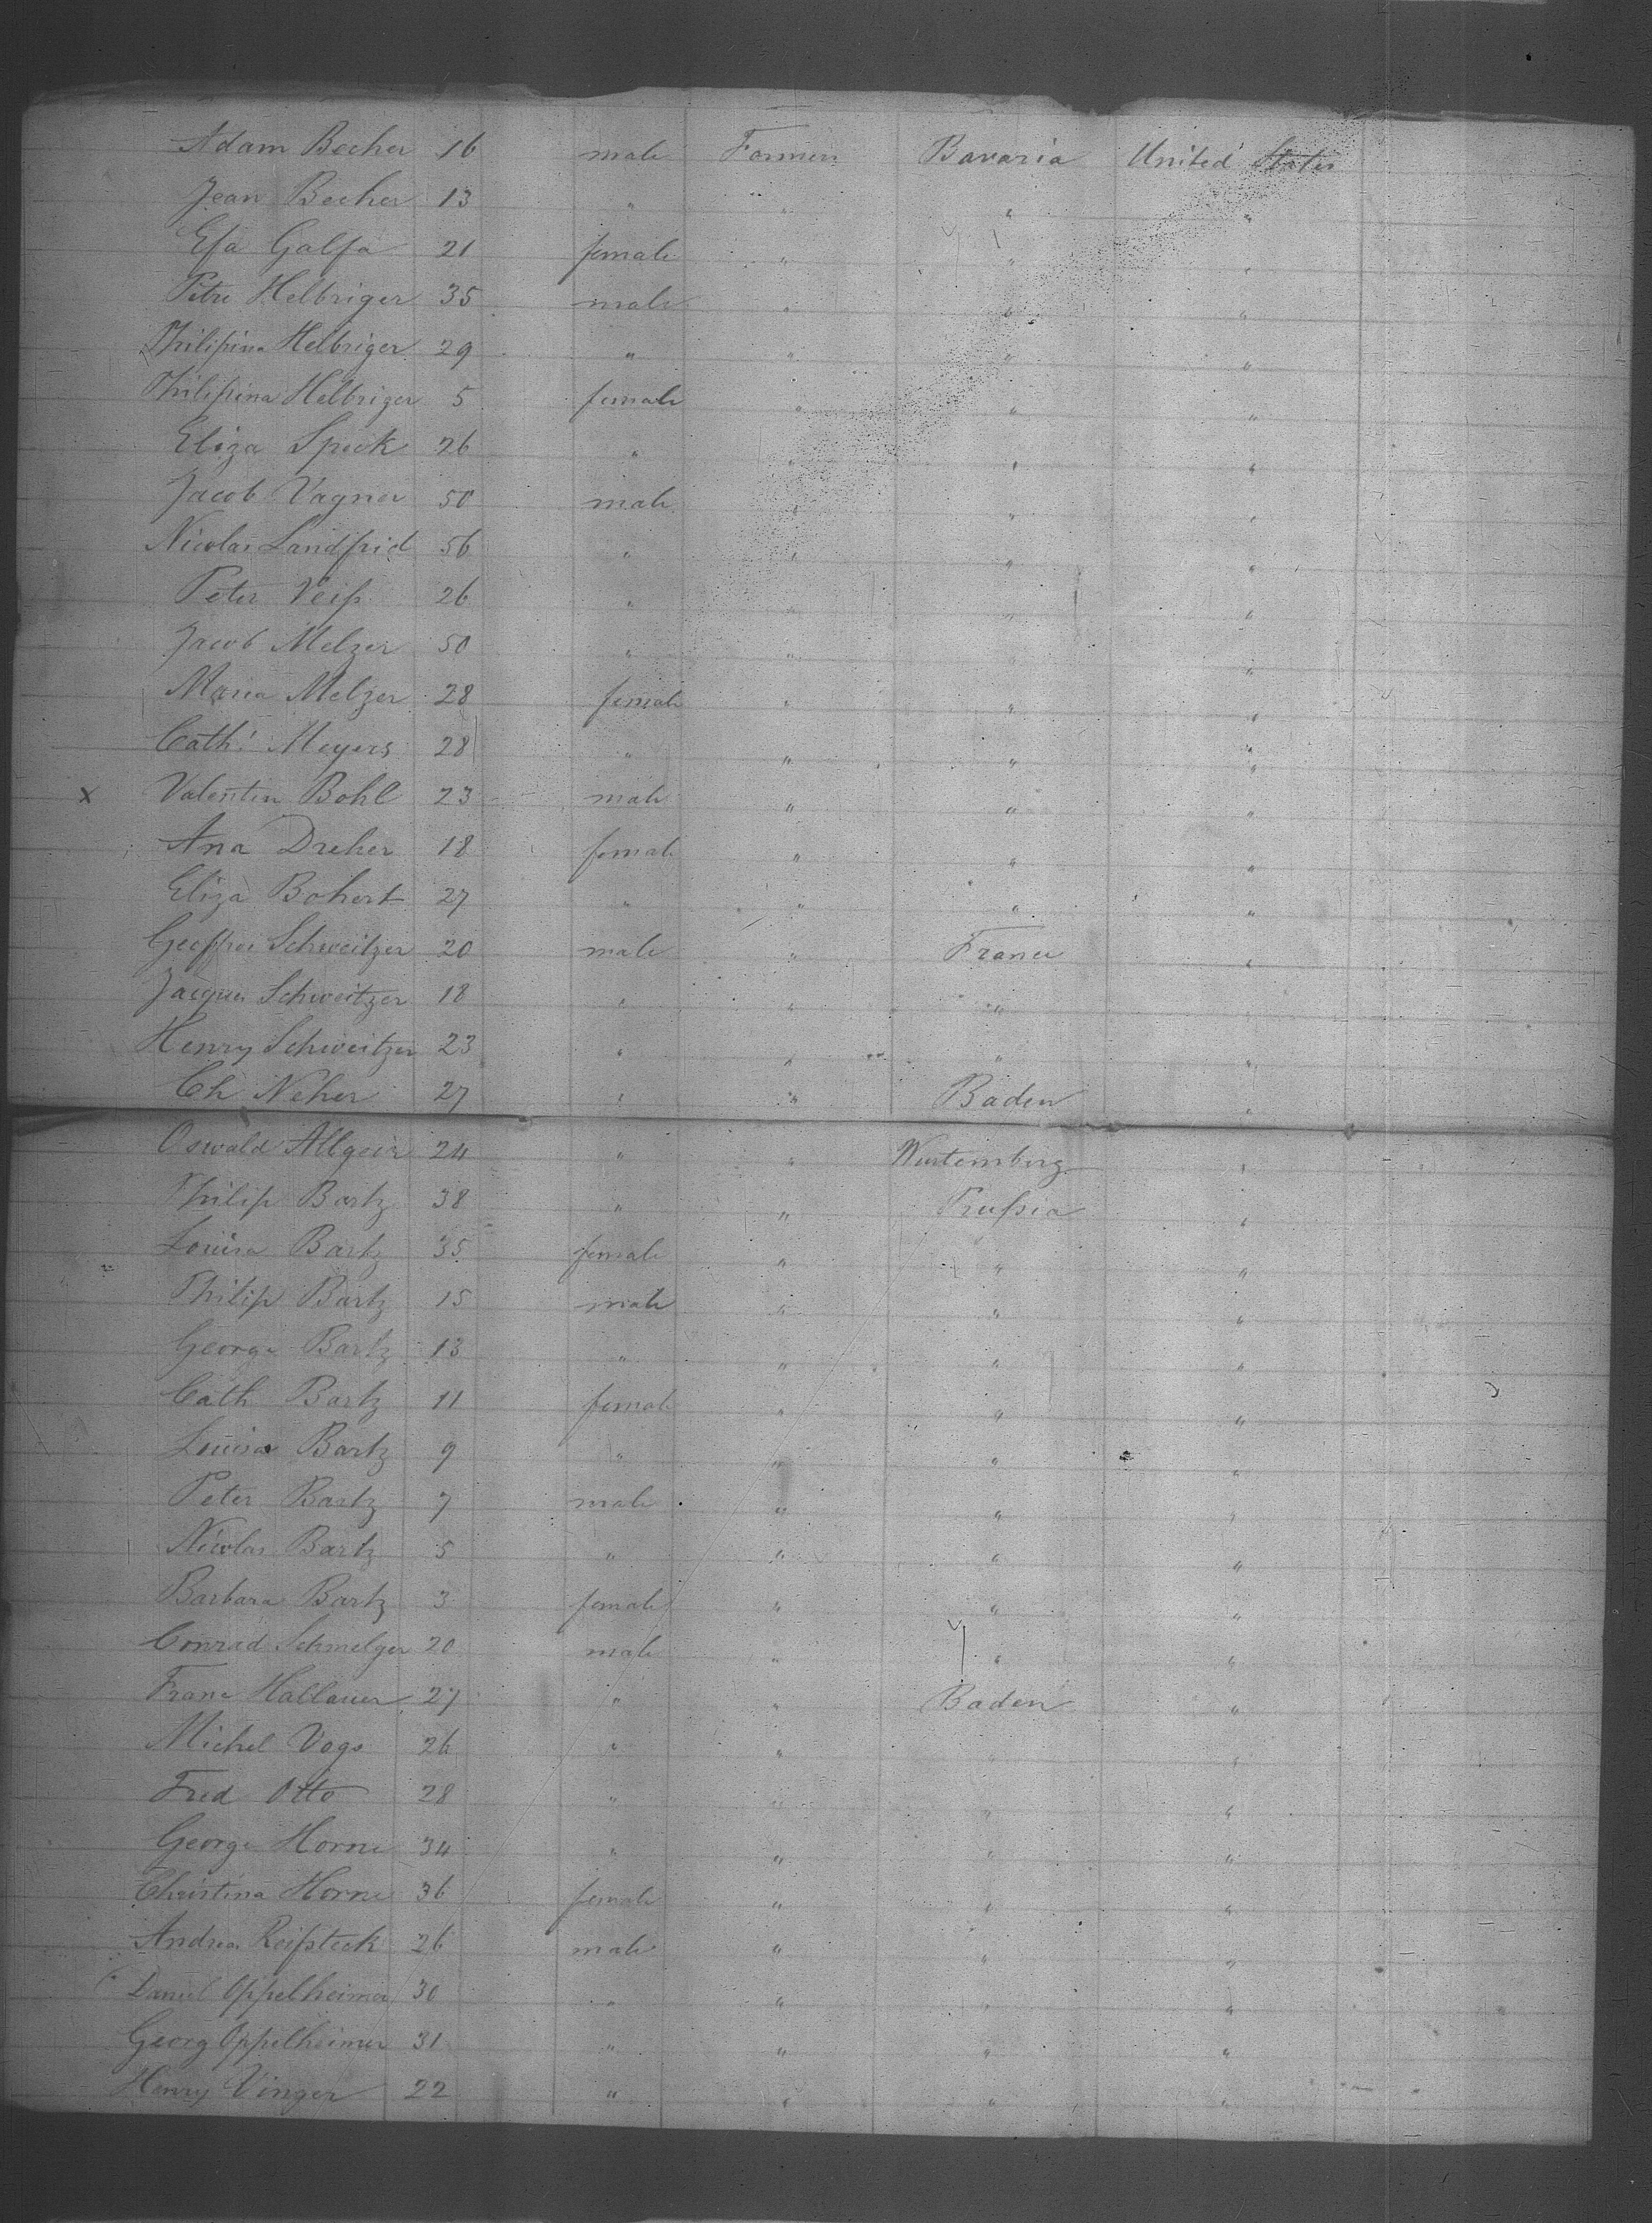 Adam Becher 16 male Farmers Bavaria United States
Jean Becher 13 " " " "
Efa Galfa 21 female " " "
Petre Helbriger 35 male " " "
Philipina Helbriger 29 " " " "
Philipina Helbriger 5 female " " "
Eliza Speck 26 " " " "
Jacob Vagner 50 male " " "
Nicolas Landfrid 56 " " " "
Peter Veiss 26 " " " "
Jacob Melzer 50 " " " "
Maria Melzer 28 female " " "
Cath: Meyers 28 " " " "
x Valentin Bohl 23 male " " "
Ana Dreher 18 female " " "
Eliza Bohert 27 " " " "
Schweitzer 20 male " France "
Jacques Schweitzer 18 " " " "
Henry Schweitzer 23 " " " "
Ch Neher 27 " " Baden "
Oswald Allgeir 24 " " Wurtemberg "
Philip Bartz 38 " " Prussia "
Louisa Bartz 35 female " " "
Philip Bartz 15 male " " "
George Bartz 13 " " " "
Cath Bartz 11 female " " "
Louisa Bartz 9 " " " "
Peter Bartz 7 male " " "
Nicolas Bartz 5 " " " "
Barbara Bartz 3 female " " "
Conrad Schmelzer 20 male " " "
Franz Hallauer 27 " " Baden "
Michel Vogs 26 " " " "
Fred Otto 28 " " " "
George Horne 34 " " " "
Christina Horne 36 female " " "
Andrea Reissteck 26 male " " "
Daniel Oppelheimer 30 " " " "
Georg Oppelheimer 31 " " " "
Henry Vinger 22 " " " "